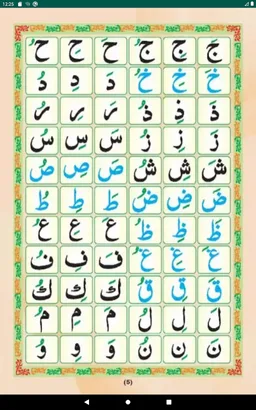 12:25
جَ جِ جُ حَ حِ حُ
خَ خِ خُ دَ دِ دُ
ذَ ذِ ذُ رَ رِ رُ
زَ زِ زُ سَ سِ سُ
شَ شِ شُ صَ صِ صُ
ضَ ضِ ضُ طَ طِ طُ
ظَ ظِ ظُ عَ عِ عُ
غَ غِ غُ فَ فِ فُ
قَ قِ قُ كَ كِ كُ
لَ لِ لُ مَ مِ مُ
نَ نِ نُ وَ وِ وُ
(5)